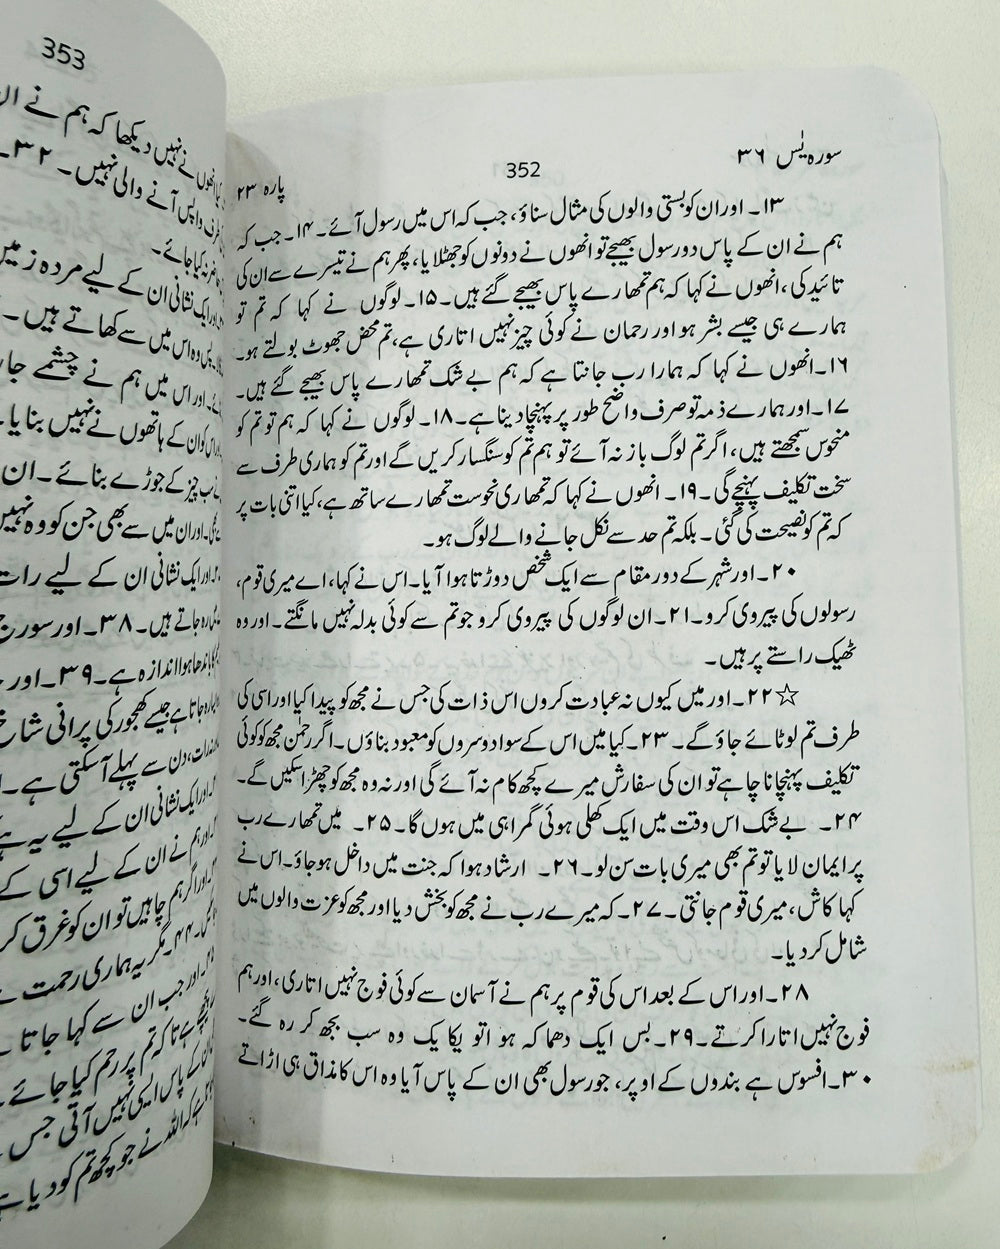 سورہ یٰس ۳۶
352
پارہ ۲۳
۱۳۔ اور ان کو بستی والوں کی مثال سناؤ، جب کہ اس میں رسول آئے۔ ۱۴۔ جب کہ
ہم نے ان کے پاس دو رسول بھیجے تو انھوں نے دونوں کو جھٹلایا، پھر ہم نے تیسرے سے ان کی
تائید کی، انھوں نے کہا کہ ہم تمھارے پاس بھیجے گئے ہیں۔ ۱۵۔ لوگوں نے کہا کہ تم تو
ہمارے ہی جیسے بشر ہو اور رحمان نے کوئی چیز نہیں اتاری ہے، تم محض جھوٹ بولتے ہو۔
۱۶۔ انھوں نے کہا کہ ہمارا رب جانتا ہے کہ ہم بے شک تمھارے پاس بھیجے گئے ہیں۔
۱۷۔ اور ہمارے ذمہ تو صرف واضح طور پر پہنچا دینا ہے۔ ۱۸۔ لوگوں نے کہا کہ ہم تو تم کو
منحوس سمجھتے ہیں، اگر تم لوگ باز نہ آئے تو ہم تم کو سنگسار کریں گے اور تم کو ہماری طرف سے
سخت تکلیف پہنچے گی۔ ۱۹۔ انھوں نے کہا کہ تمھاری نحوست تمھارے ساتھ ہے، کیا اتنی بات پر
کہ تم کو نصیحت کی گئی۔ بلکہ تم حد سے نکل جانے والے لوگ ہو۔
۲۰۔ اور شہر کے دور مقام سے ایک شخص دوڑتا ہوا آیا۔ اس نے کہا، اے میری قوم،
رسولوں کی پیروی کرو۔ ۲۱۔ ان لوگوں کی پیروی کرو جو تم سے کوئی بدلہ نہیں مانگتے۔ اور وہ
ٹھیک راستے پر ہیں۔
☆۲۲۔ اور میں کیوں نہ عبادت کروں اس ذات کی جس نے مجھ کو پیدا کیا اور اسی کی
طرف تم لوٹائے جاؤ گے۔ ۲۳۔ کیا میں اس کے سوا دوسروں کو معبود بناؤں۔ اگر رحمٰن مجھ کو کوئی
تکلیف پہنچانا چاہے تو ان کی سفارش میرے کچھ کام نہ آئے گی اور نہ وہ مجھ کو چھڑا سکیں گے۔
۲۴۔ بے شک اس وقت میں ایک کھلی ہوئی گمراہی میں ہوں گا۔ ۲۵۔ میں تمھارے رب
پر ایمان لایا تو تم بھی میری بات سن لو۔ ۲۶۔ ارشاد ہوا کہ جنت میں داخل ہو جاؤ۔ اس نے
کہا کاش، میری قوم جانتی۔ ۲۷۔ کہ میرے رب نے مجھ کو بخش دیا اور مجھ کو عزت والوں میں
شامل کر دیا۔
۲۸۔ اور اس کے بعد اس کی قوم پر ہم نے آسمان سے کوئی فوج نہیں اتاری، اور ہم
فوج نہیں اتارا کرتے۔ ۲۹۔ بس ایک دھماکہ ہوا تو یکایک وہ سب بجھ کر رہ گئے۔
۳۰۔ افسوس ہے بندوں کے اوپر، جو رسول بھی ان کے پاس آیا وہ اس کا مذاق ہی اڑاتے
353
نہیں دیکھا کہ ہم نے
واپس آنے والی نہیں۔ ۳۲۔
کیا جائے۔
ایک نشانی ان کے لیے مردہ زمین
وہ اس میں سے کھاتے ہیں۔
اور اس میں ہم نے چشمے
کے ہاتھوں نے نہیں بنایا۔
چیز کے جوڑے بنائے۔ ان
اور ان میں سے بھی جن کو وہ نہیں
اور ایک نشانی ان کے لیے رات
جاتے ہیں۔ ۳۸۔ اور سورج
باندھا ہوا اندازہ ہے۔ ۳۹۔ اور
جاتا ہے جیسے کھجور کی پرانی شاخ
رات، دن سے پہلے آسکتی ہے۔
اور ایک نشانی ان کے لیے یہ ہے
ہم نے ان کے لیے اسی کے
اور اگر ہم چاہیں تو ان کو غرق کر
۴۴۔ مگر یہ ہماری رحمت
اور جب ان سے کہا جاتا
تاکہ تم پر رحم کیا جائے۔
کے پاس ایسی نہیں آتی جس
کہ اللہ نے جو کچھ تم کو دیا ہے